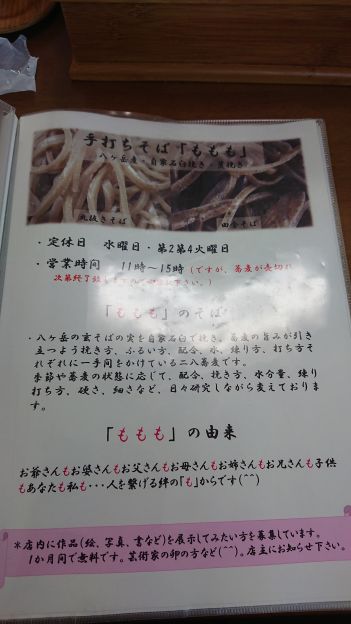 手打ちそば「ももも」
八ヶ岳産・自家石臼挽き・
丸抜きそば 田舎そば
・定休日 水曜日・第2第4火曜日
・営業時間 11時~15時(ですが、蕎麦が売切れ
次第終了
「ももも」のそば
・八ヶ岳の玄そばの実を自家石臼で挽き、蕎麦の旨みが引き
立つよう挽き方、ふるい方、配合、水、練り方、打ち方そ
れぞれに一手間をかけている二八蕎麦です。
季節や蕎麦の状態に応じて、配合、挽き方、水分量、練り
打ち方、硬さ、細さなど、日々研究しながら変えておりま
す。
「ももも」の由来
お爺さんもお婆さんもお父さんもお母さんもお姉さんもお兄さんも子供
もあなたも私も・・・人を繋げる絆の「も」からです(^^)
*店内に作品(絵、写真、書など)を展示してみたい方を募集しています。
1か月間で無料です。芸術家の卵の方など(^^)。店主にお知らせ下さい。